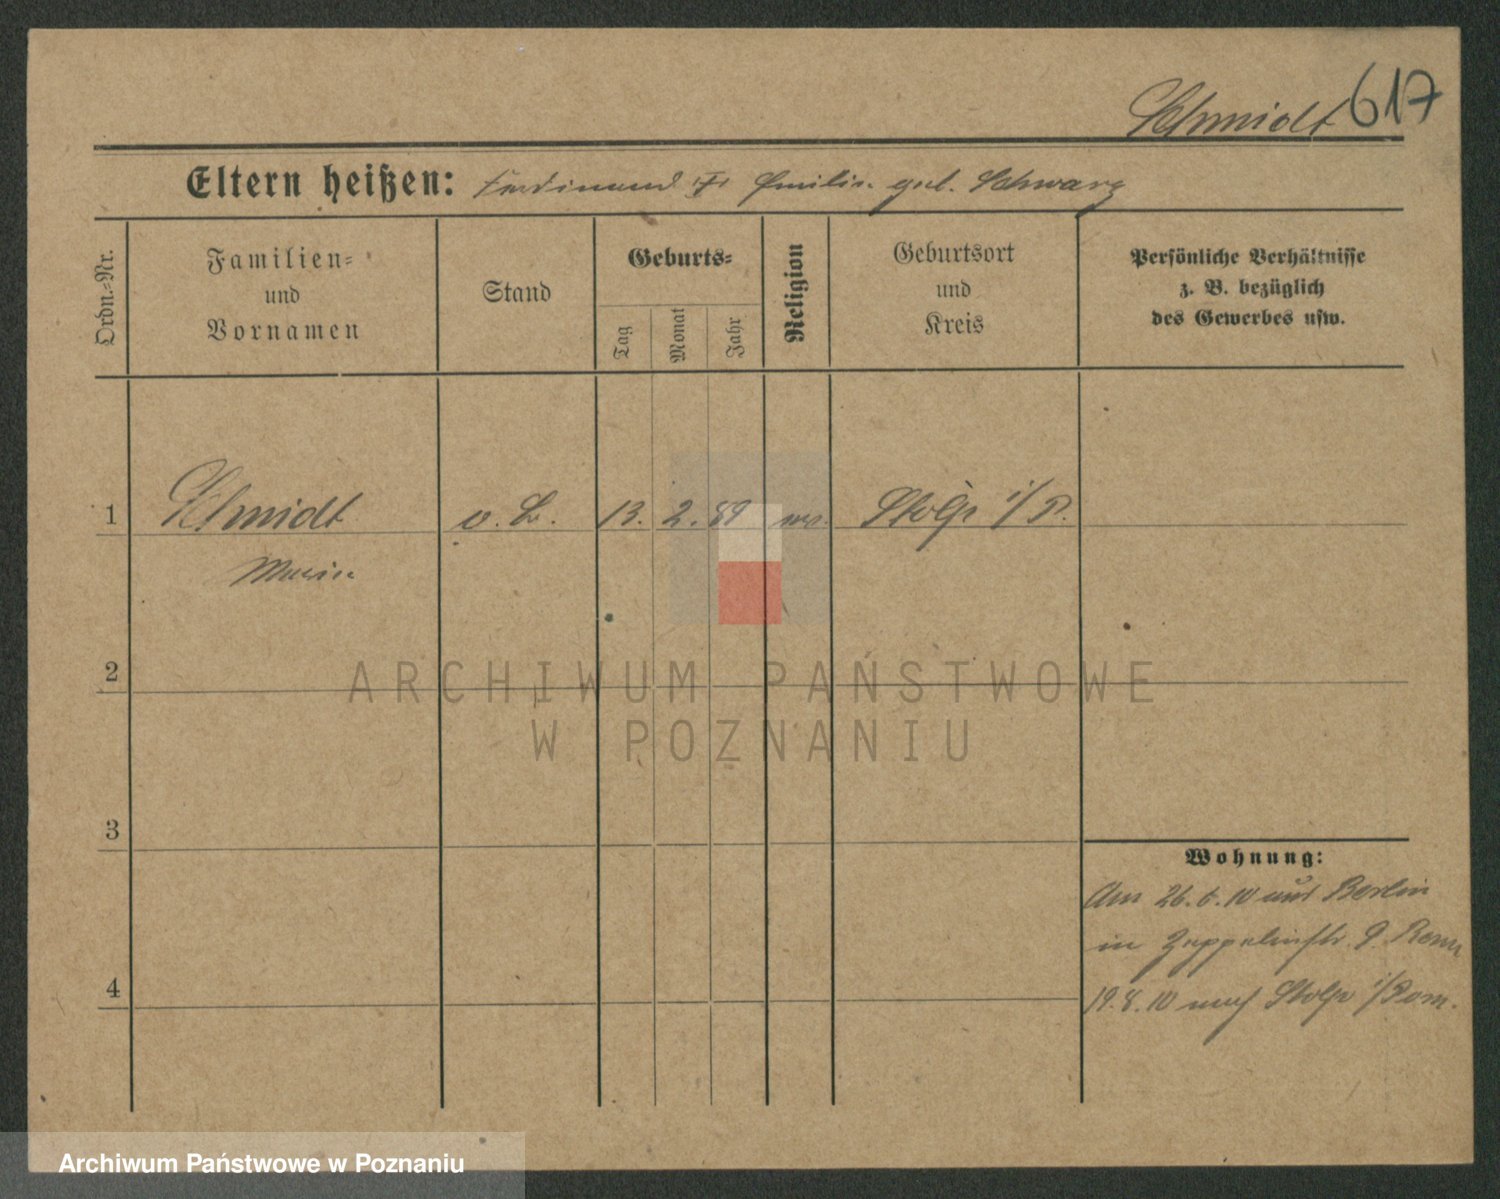 Schmidt 617
Eltern heißen: Ferdinand u. Emilie geb. Schwarz
Ordn.-Nr.
Familien-
und
Vornamen
Stand
Geburts-
Tag
Monat
Jahr
Religion
Geburtsort
und
Kreis
Persönliche Verhältnisse
z. B. bezüglich
des Gewerbes usw.
1 Schmidt o. B. 13. 2. 89 ev. Stolp i/P.
Marie
2
ARCHIWUM PAŃSTWOWE
W POZNANIU
3
Wohnung:
Am 26.6.10 aus Berlin
in Zeppelinstr. 9.
4
19.8.10 nach Stolp i/Pom.
Archiwum Państwowe w Poznaniu